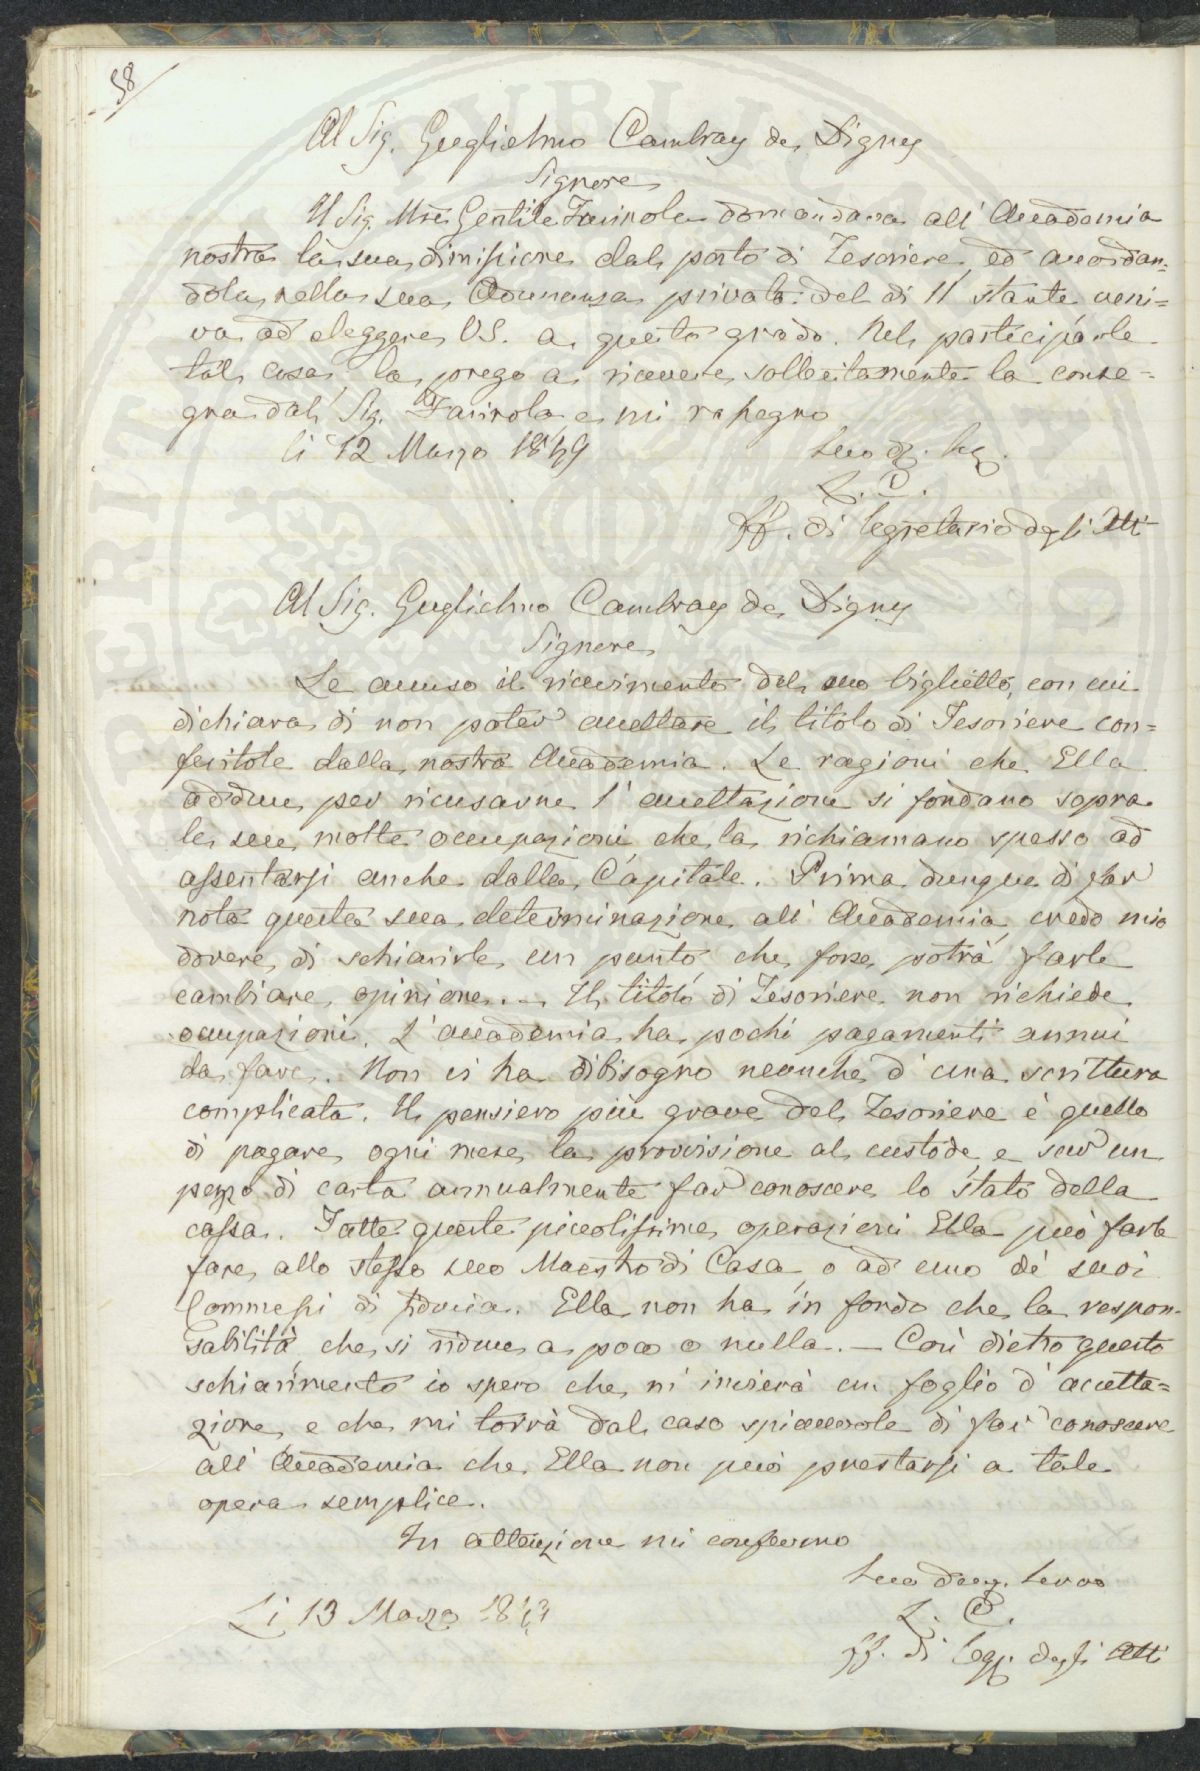 58
Al Sig. Guglielmo Cambray de Digny
Signore
Il Sig. Mse Gentile Farinola domandava all' Accademia
nostra la sua dimissione dal posto di Tesoriere, ed accordan=
dola nella sua Adunanza privata del dì 11 stante veni=
va ad eleggere VS. a questo grado. Nel partecipàrle
tal cosa la prego a ricevere sollecitamente la conse=
gna dal Sig. Farinola e mi rassegno
li 12 Marzo 1849
Suo
L. C.
ff. di Segretario degli Atti
Al Sig. Guglielmo Cambray de Digny
Signore
Le accuso il ricevimento del suo biglietto, con cui
dichiara di non poter accettare il titolo di Tesoriere con=
feritole dalla nostra Accademia. Le ragioni che Ella
adduce per ricusarne l'accettazione si fondano sopra
le sue molte occupazioni che la richiamano spesso ad
assentarsi anche dalla Capitale. Prima dunque di far
nota questa sua determinazione all' Accademia credo mio
dovere di schiarirle un punto che forse potrà farle
cambiare opinione. — Il titolo di Tesoriere non richiede
occupazioni. L'accademia ha pochi pagamenti annui
da fare. Non vi ha dibisogno neanche d'una scrittura
complicata. Il pensiero più grave del Tesoriere è quello
di pagare ogni mese la provvisione al custode e sur un
pezzo di carta annualmente far conoscere lo stato della
cassa. Tutte queste piccolissime operazioni Ella può farle
fare allo stesso suo Maestro di Casa o ad uno de' suoi
Commessi di fiducia. Ella non ha in fondo che la respon=
sabilità che si riduce a poco o nulla. — Così dietro questo
schiarimento io spero che m'invierà un foglio d'accetta=
zione e che mi torrà dal caso spiacevole di far conoscere
all' Accademia che Ella non può prestarsi a tale
opera semplice.
In attenzione mi confermo
Suo Dev. Servo
Li 13 Marzo
L. C.
ff. di Seg. degli Atti